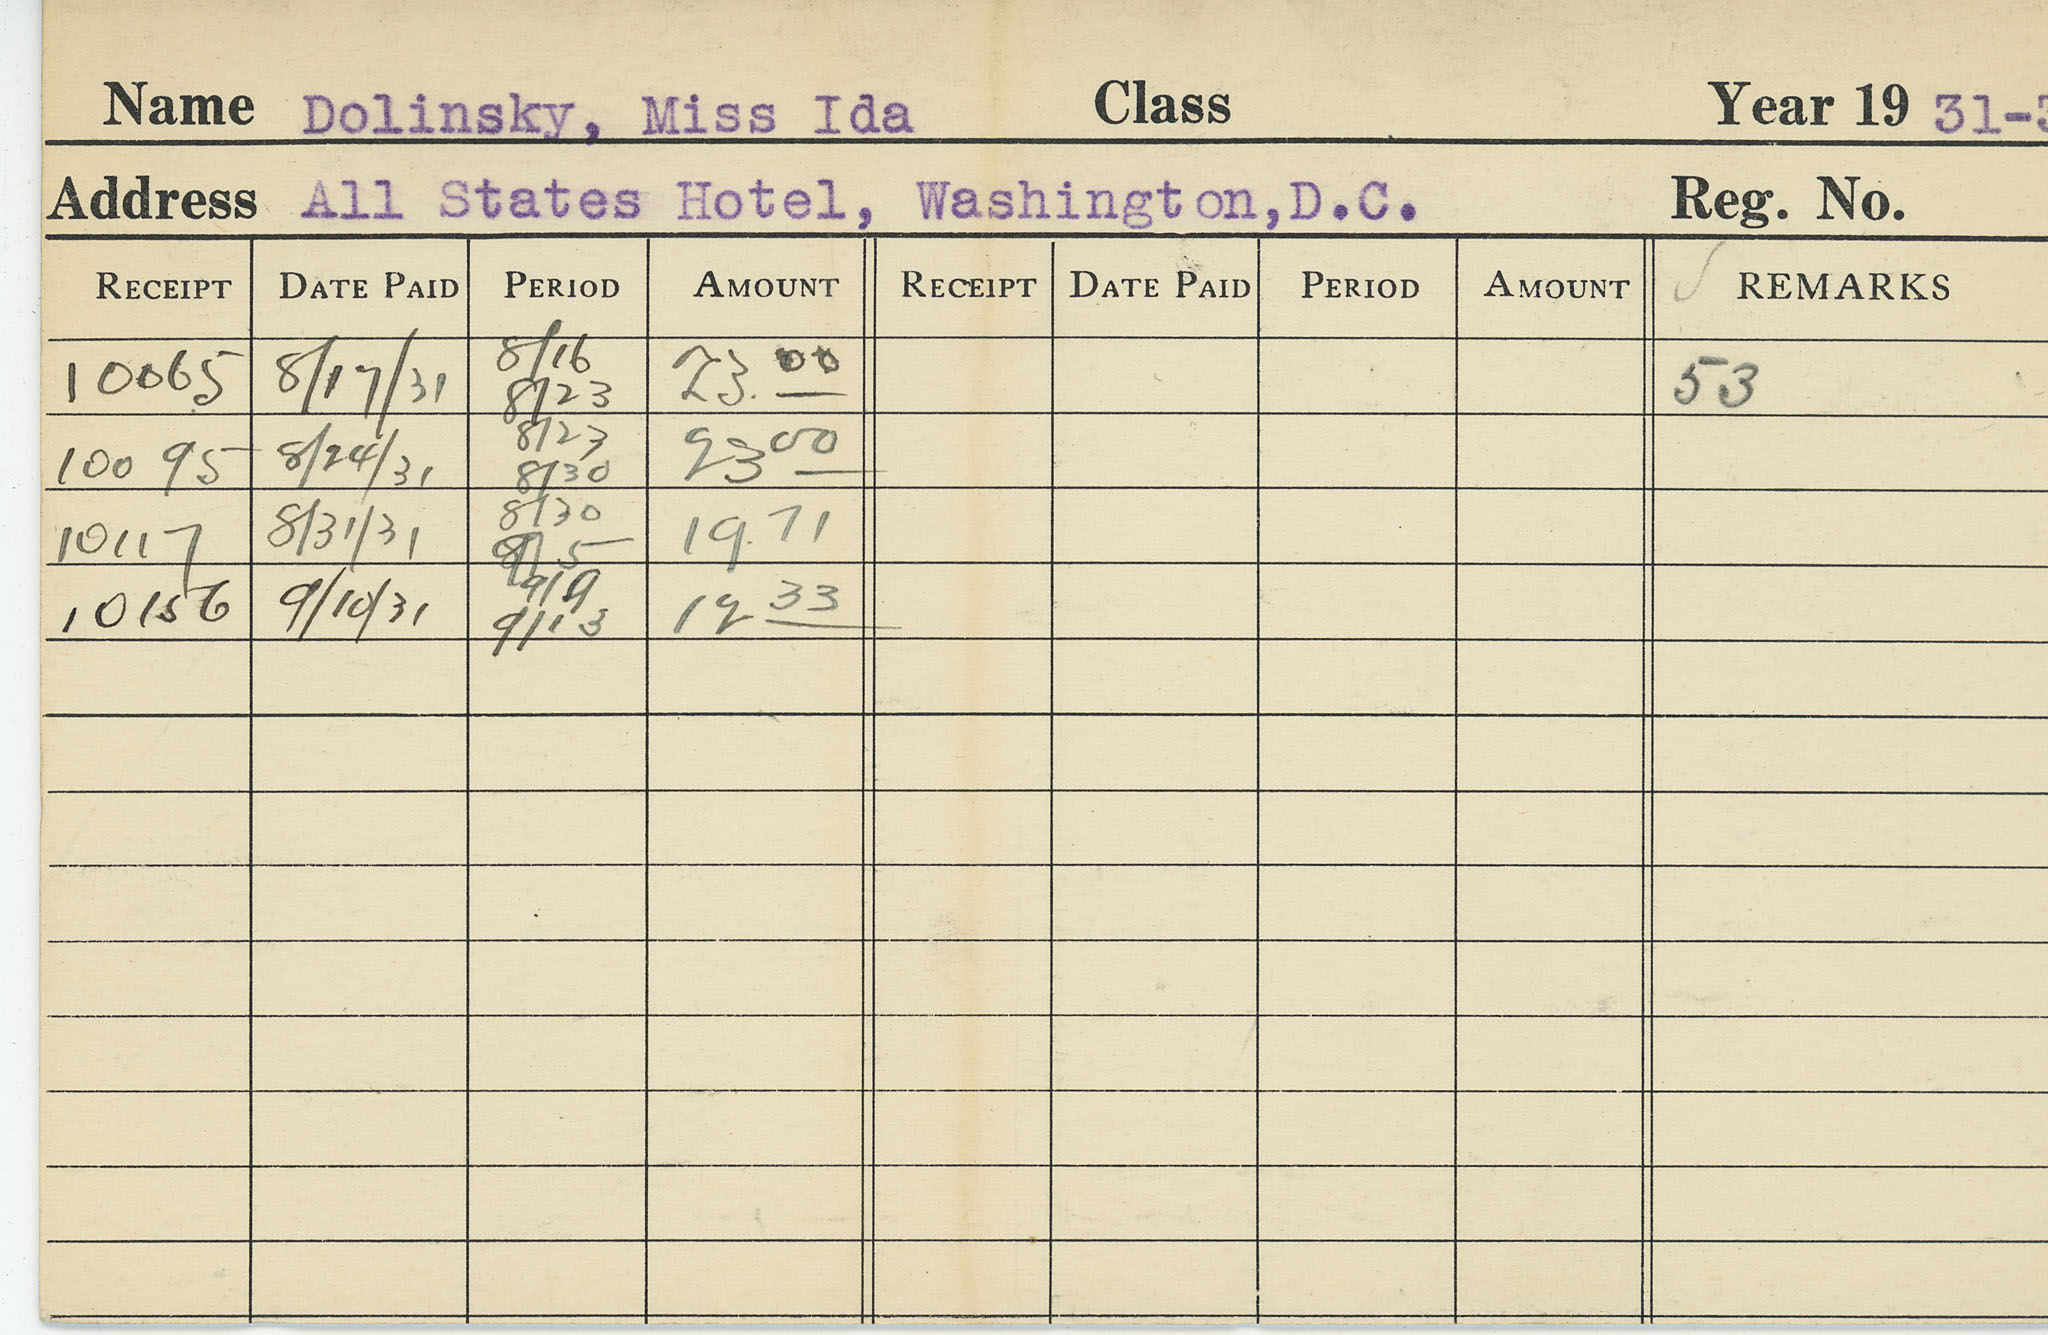 Name Dolinsky, Miss Ida Class Year 19 31-3
Address All States Hotel, Washington, D.C. Reg. No.
RECEIPT DATE PAID PERIOD AMOUNT RECEIPT DATE PAID PERIOD AMOUNT REMARKS
10065 8/17/31 8/16 8/23 23.00 53
10095 8/24/31 8/23 8/30 23 00
10117 8/31/31 8/30 9/5 19.71
10156 9/10/31 9/9 9/13 12 33